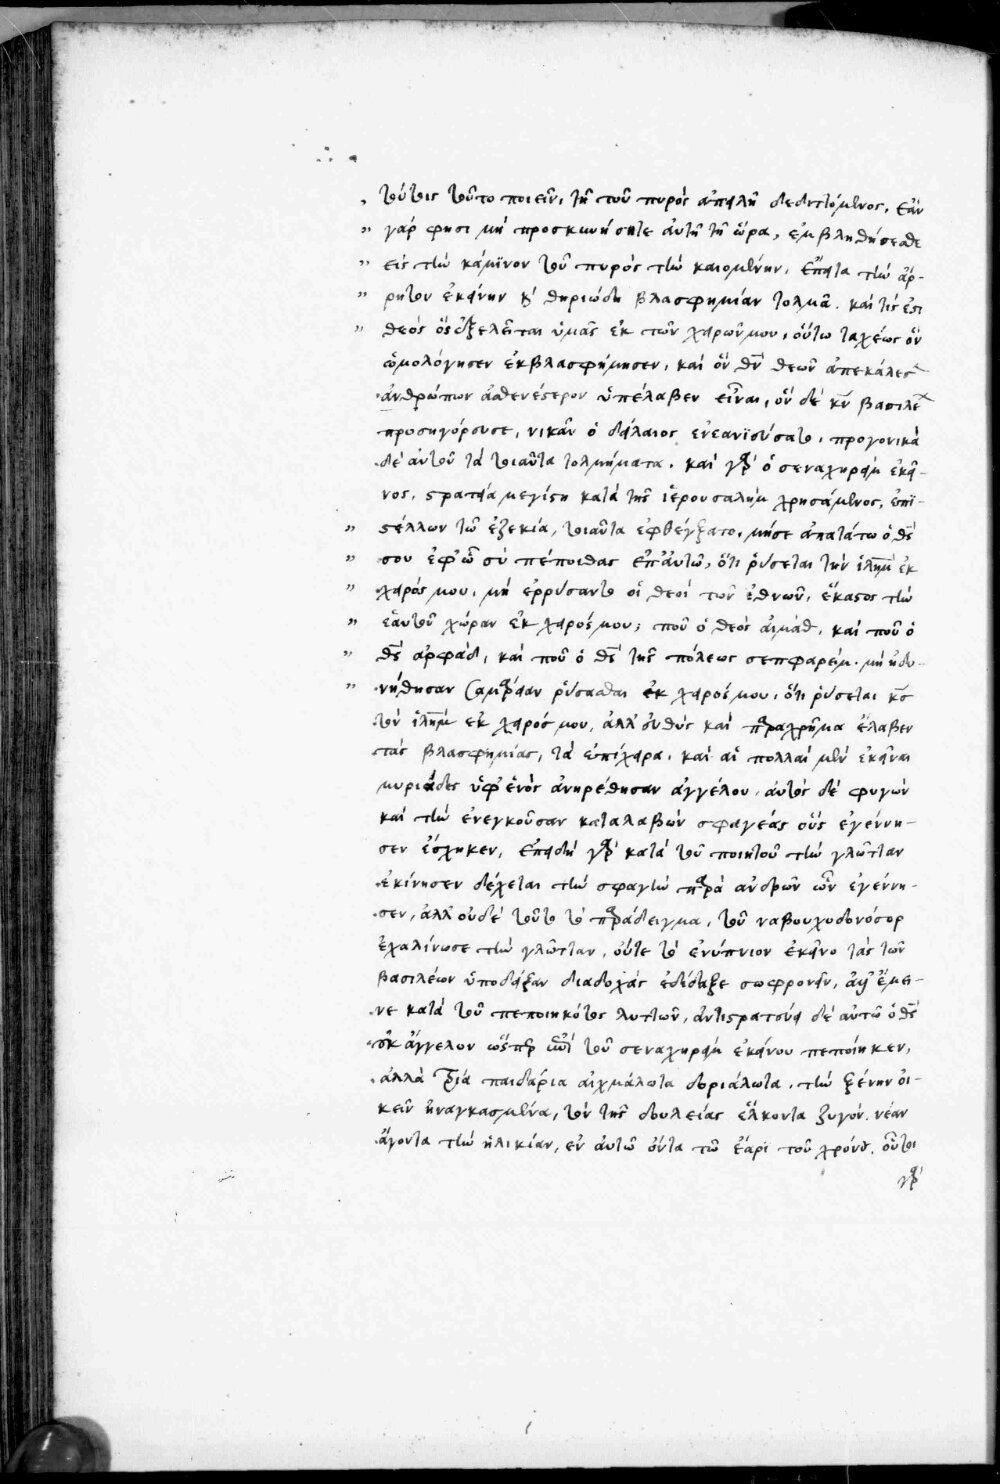 τούτοις τοῦτο ποιεῖν, τῇ τοῦ πυρὸς ἀπειλῇ δεδιττόμενος, ἐὰν
γάρ φησι μὴ προσκυνήσητε αὐτῇ τῇ ὥρα, ἐμβληθήσεσθε
εἰς τὴν κάμϊνον τοῦ πυρὸς τὴν καιομένην, ἔπειτα τὴν ἄρ-
ρητον ἐκείνην καὶ θηριώδη βλασφημίαν τολμᾷ. καὶ τίς ἐστι
θεὸς ὃς ἐξελεῖται ὑμᾶς ἐκ τῶν χειρῶν μου, οὕτω ταχέως ὃν
ὡμολόγησεν ἐκβλασφήμησεν, καὶ ὃν θν θεῶν ἀπεκάλεσ
ἀνθρώπων ἀσθενέστερον ὑπέλαβεν εἶναι, ὃν δὲ κν βασιλε
προσηγόρευσε, νικᾶν ὁ δείλαιος ἐνεανϊεύσατο, προγονικὰ
δὲ αὐτοῦ τὰ τοιαῦτα τολμήματα. καὶ γὰρ ὁ σεναχηρεὶμ ἐκεῖ-
νος, στρατεία μεγίστη κατὰ τῆς ἱερουσαλὴμ χρησάμενος, ἐπϊ-
στέλλων τῶ ἐζεκία, τοιαῦτα ἐφθέγξατο, μήσε ἀπατάτω ὁ θς
σου ἐφ' ὧ σὺ πέποιθας ἐπ' αὐτῶ, ὅτι ῥύσεται τὴν ἱλημ ἐκ
χειρός μου, μὴ ἐρρύσαντο οἱ θεοὶ τῶν ἐθνῶν, ἕκαστος τὴν
ἑαυτοῦ χώραν ἐκ χειρός μου; ποῦ ὁ θεὸς αἰμὰθ, καὶ ποῦ ὁ
θς ἀρφὰδ, καὶ ποῦ ὁ θς τῆς πόλεως σεπφαρείμ. μὴ ἠδυ-
νήθησαν σαμάρειαν ῥύσασθαι ἐκ χειρός μου, ὅτι ῥύσεται κς
τὴν ἱλημ ἐκ χειρός μου, ἀλλ' εὐθὺς καὶ παραχρῆμα ἔλαβεν
τὰς βλασφημίας, τὰ ἐπίχειρα, καὶ αἱ πολλαὶ μὲν ἐκεῖναι
μυριάδες ὑφ' ἑνὸς ἀνηρέθησαν ἀγγέλου, αὐτὸς δὲ φυγὼν
καὶ τὴν ἐνεγκοῦσαν καταλαβὼν σφαγέας οὓς ἐγέννη-
σεν ἔσχηκεν, ἐπειδὴ γὰρ κατὰ τοῦ ποιητοῦ τὴν γλῶτταν
ἐκίνησεν δέχεται τὴν σφαγὴν παρὰ ἀνδρῶν ὧν ἐγέννη-
σεν, ἀλλ' οὐδὲ τοῦτο τὸ παράδειγμα, τοῦ ναβουχοδονόσορ
ἐχαλίνωσε τὴν γλῶτταν, οὔτε τὸ ἐνύπνιον ἐκεῖνο τὰς τῶν
βασιλέων ὑποδεῖξαν διαδοχὰς ἐδίδαξε σωφρονεῖν, ἀλλ' ἔμει-
νε κατὰ τοῦ πεποιηκότος λυττῶν, ἀντιστρατεύει δὲ αὐτῶ ὁ θς
οὐκ ἄγγελον ὥσπερ ἐπὶ τοῦ σεναχηρεὶμ ἐκείνου πεποίηκεν,
ἀλλὰ τρία παιδάρια αἰχμάλωτα δοριάλωτα, τὴν ξένην οἰ-
κεῖν ἠναγκασμένα, τὸν τῆς δουλείας ἕλκοντα ζυγόν. νέαν
ἄγοντα τὴν ἡλικίαν, ἐν αὐτῶ ὄντα τῶ ἔαρϊ τοῦ χρόνου. οὗτοι
γὰρ